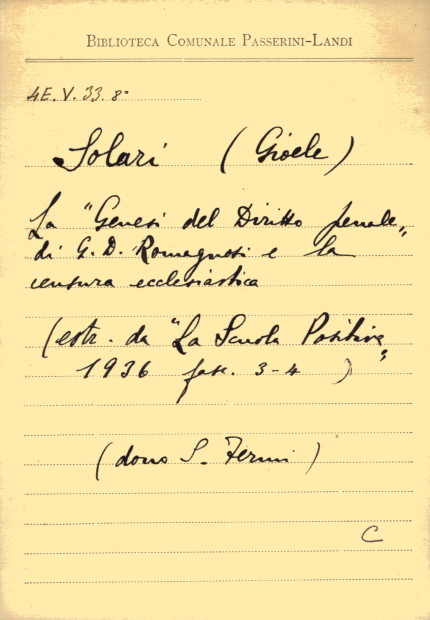 BIBLIOTECA COMUNALE PASSERINI-LANDI
4E. V. 33. 8°
Solari (Gioele)
La "Genesi del Diritto penale„
di G. D. Romagnosi e la
censura ecclesiastica
(estr. da "La Scuola Positiva„
1936 fasc. 3-4 )
(dono S. Fermi)
C